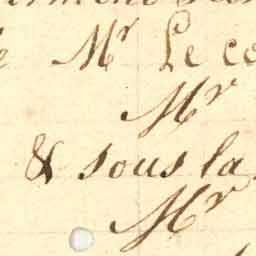 Mr Le co
Mr
& sous la
Mr